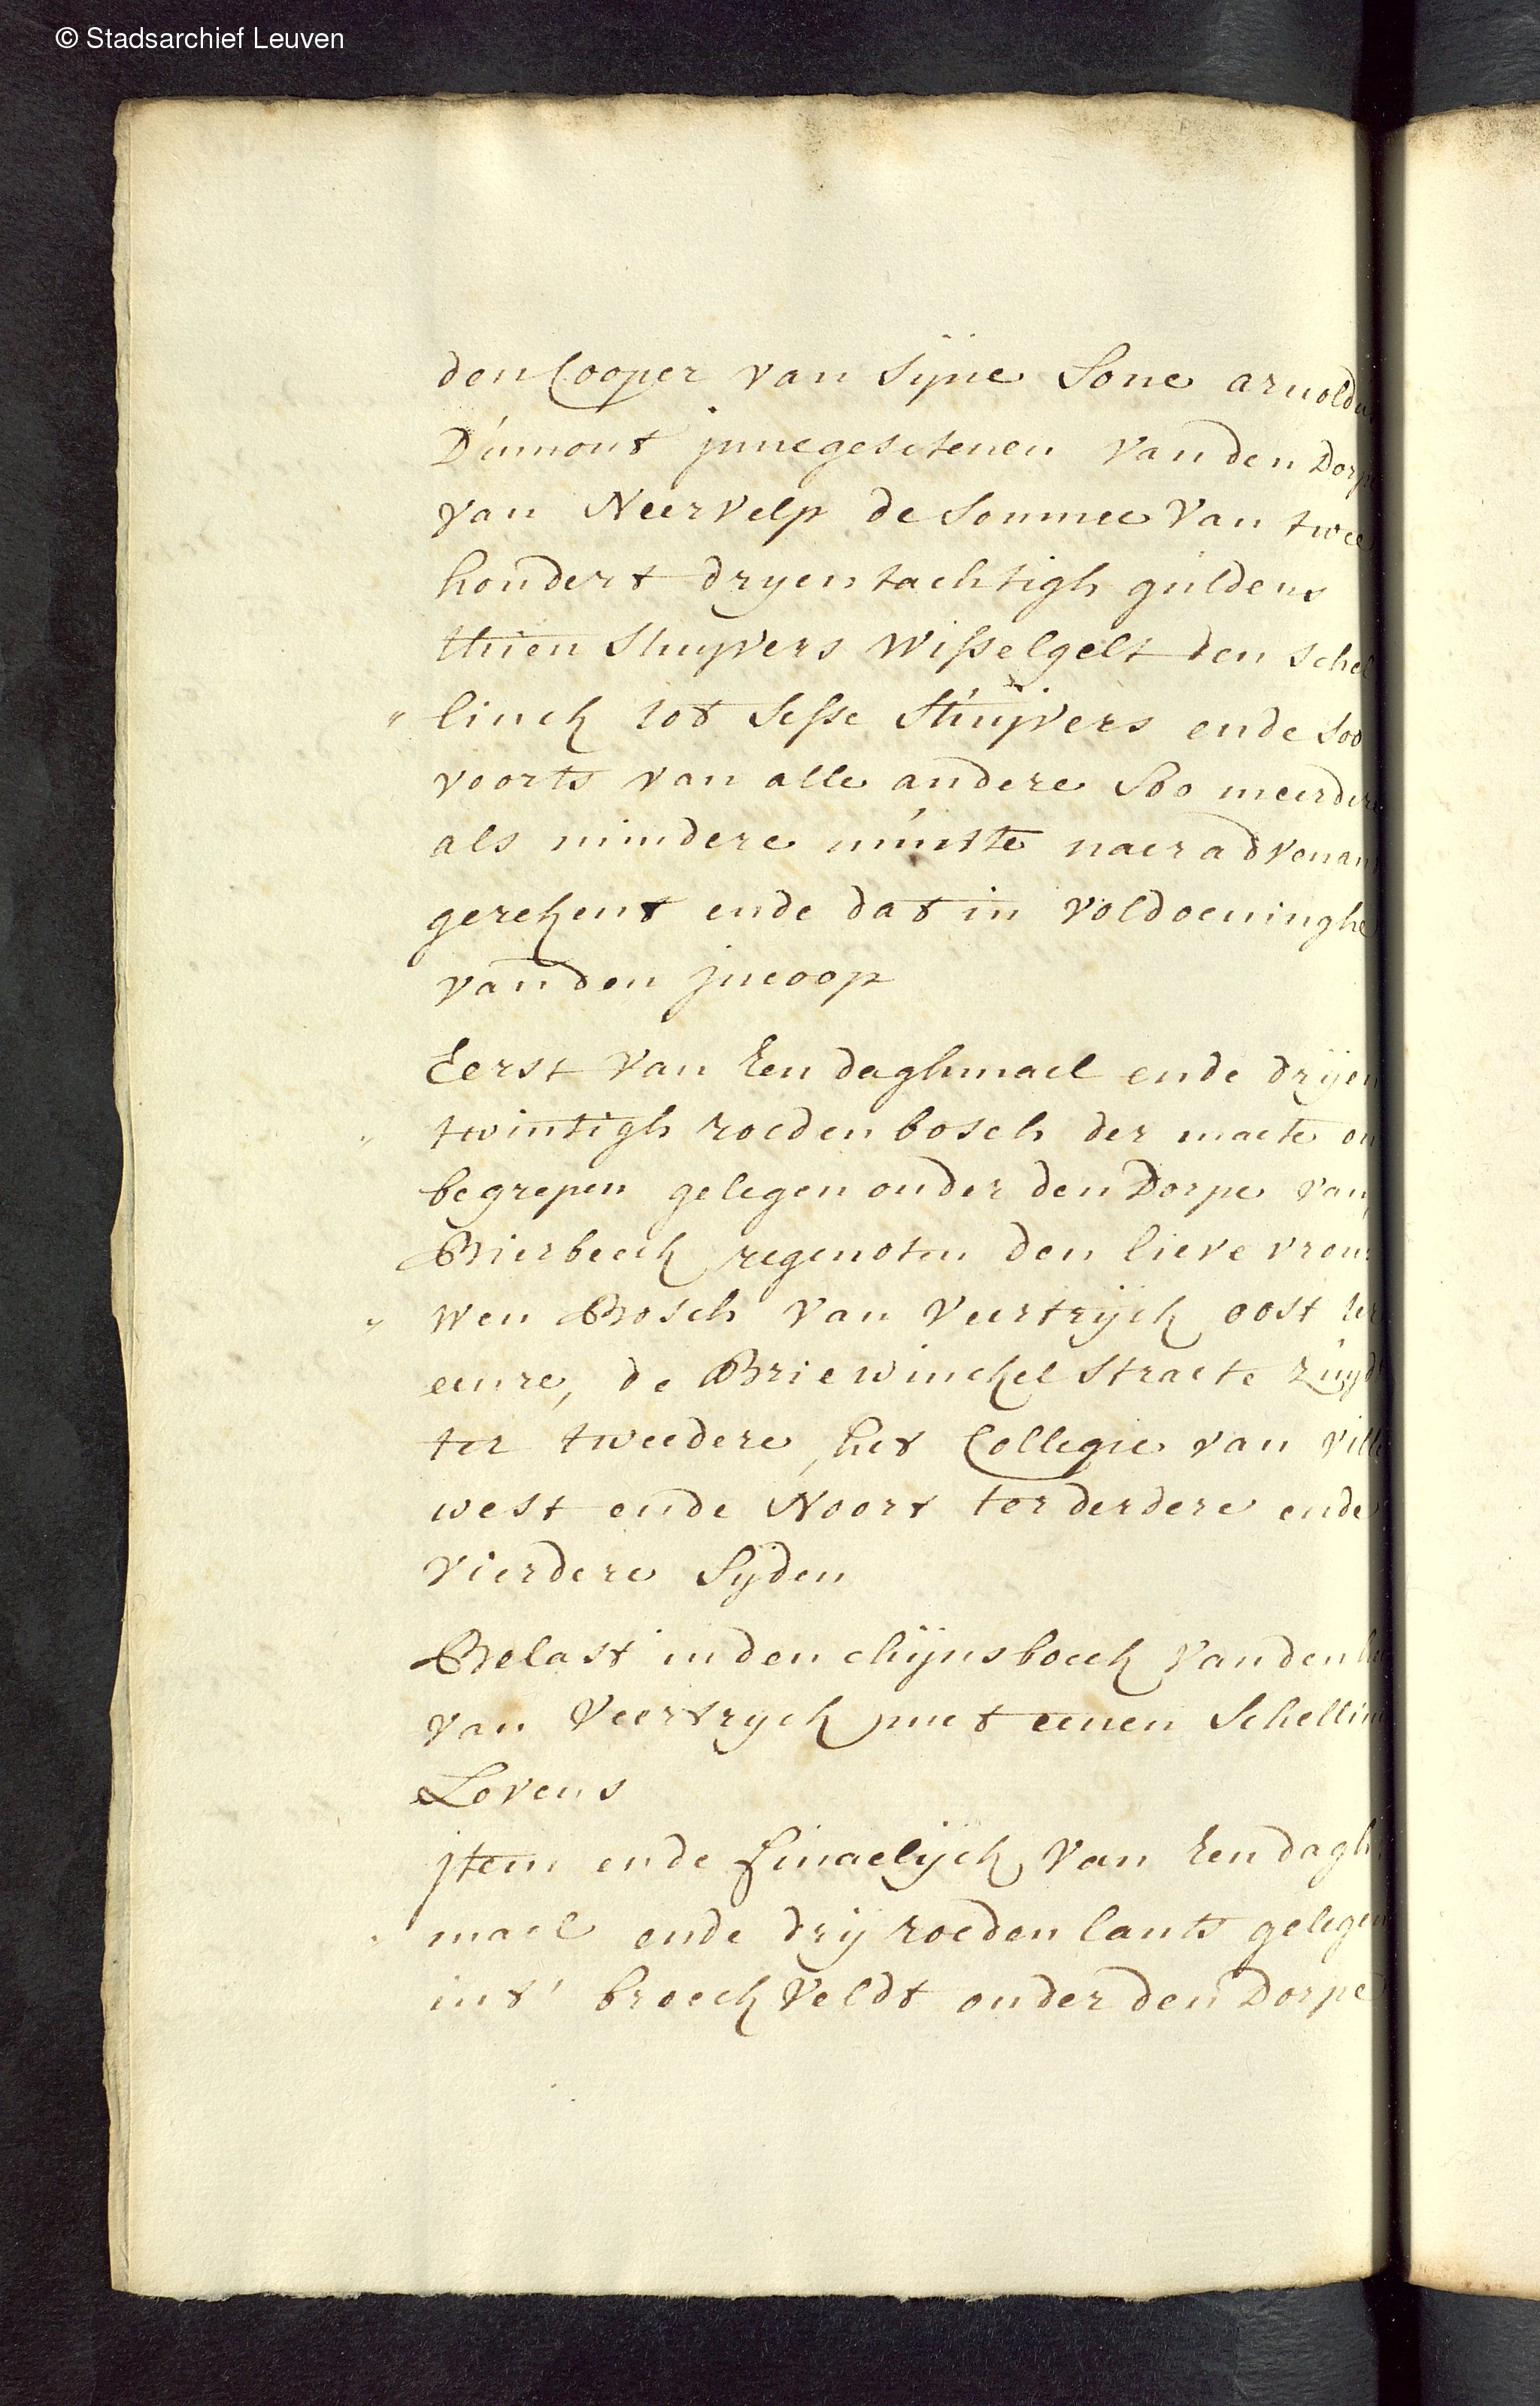 © Stadsarchief Leuven
den Cooper van sijne Sone arnoldu
Dumont jnnegesetenen van den Dorpe
van Neervelp de Somme van twee
hondert dryentachtigh guldens
thien Stuyvers wisselgelt den schel
linck tot sesse Stuijvers ende soo
voorts van alle andere soo meerdere
als mindere munte naer advenant
gerekent ende dat in voldoeninghe
van den jncoop
Eerst van Een daghmael ende drijen
twintigh roeden bosch der maete on
begrepen gelegen onder den Dorpe van
Bierbeeck regenoten den lieve vrou
wen Bosch van Veertrijck oost ter
eenre, de Briewinckel straete zuijd
ter tweedere, het Collegie van ville
west ende Noort ter derdere ende
vierdere Sijden
Belast in den chijnsboeck van den
van Veertryck met eenen Schellin
Lovens
jtem ende finaelijck van Een dagh
mael ende drij roeden lants gelegen
int' broeck veldt onder den Dorpe